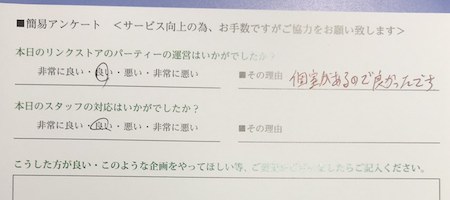 ■簡易アンケート ＜サービス向上の為、お手数ですがご協力をお願い致します＞
本日のリンクストアのパーティーの運営はいかがでしたか？
非常に良い・良い・悪い・非常に悪い ■その理由 個室があるので良かったです
本日のスタッフの対応はいかがでしたか？
非常に良い・良い・悪い・非常に悪い ■その理由
こうした方が良い・このような企画をやってほしい等、ご要望がございましたらご記入ください。